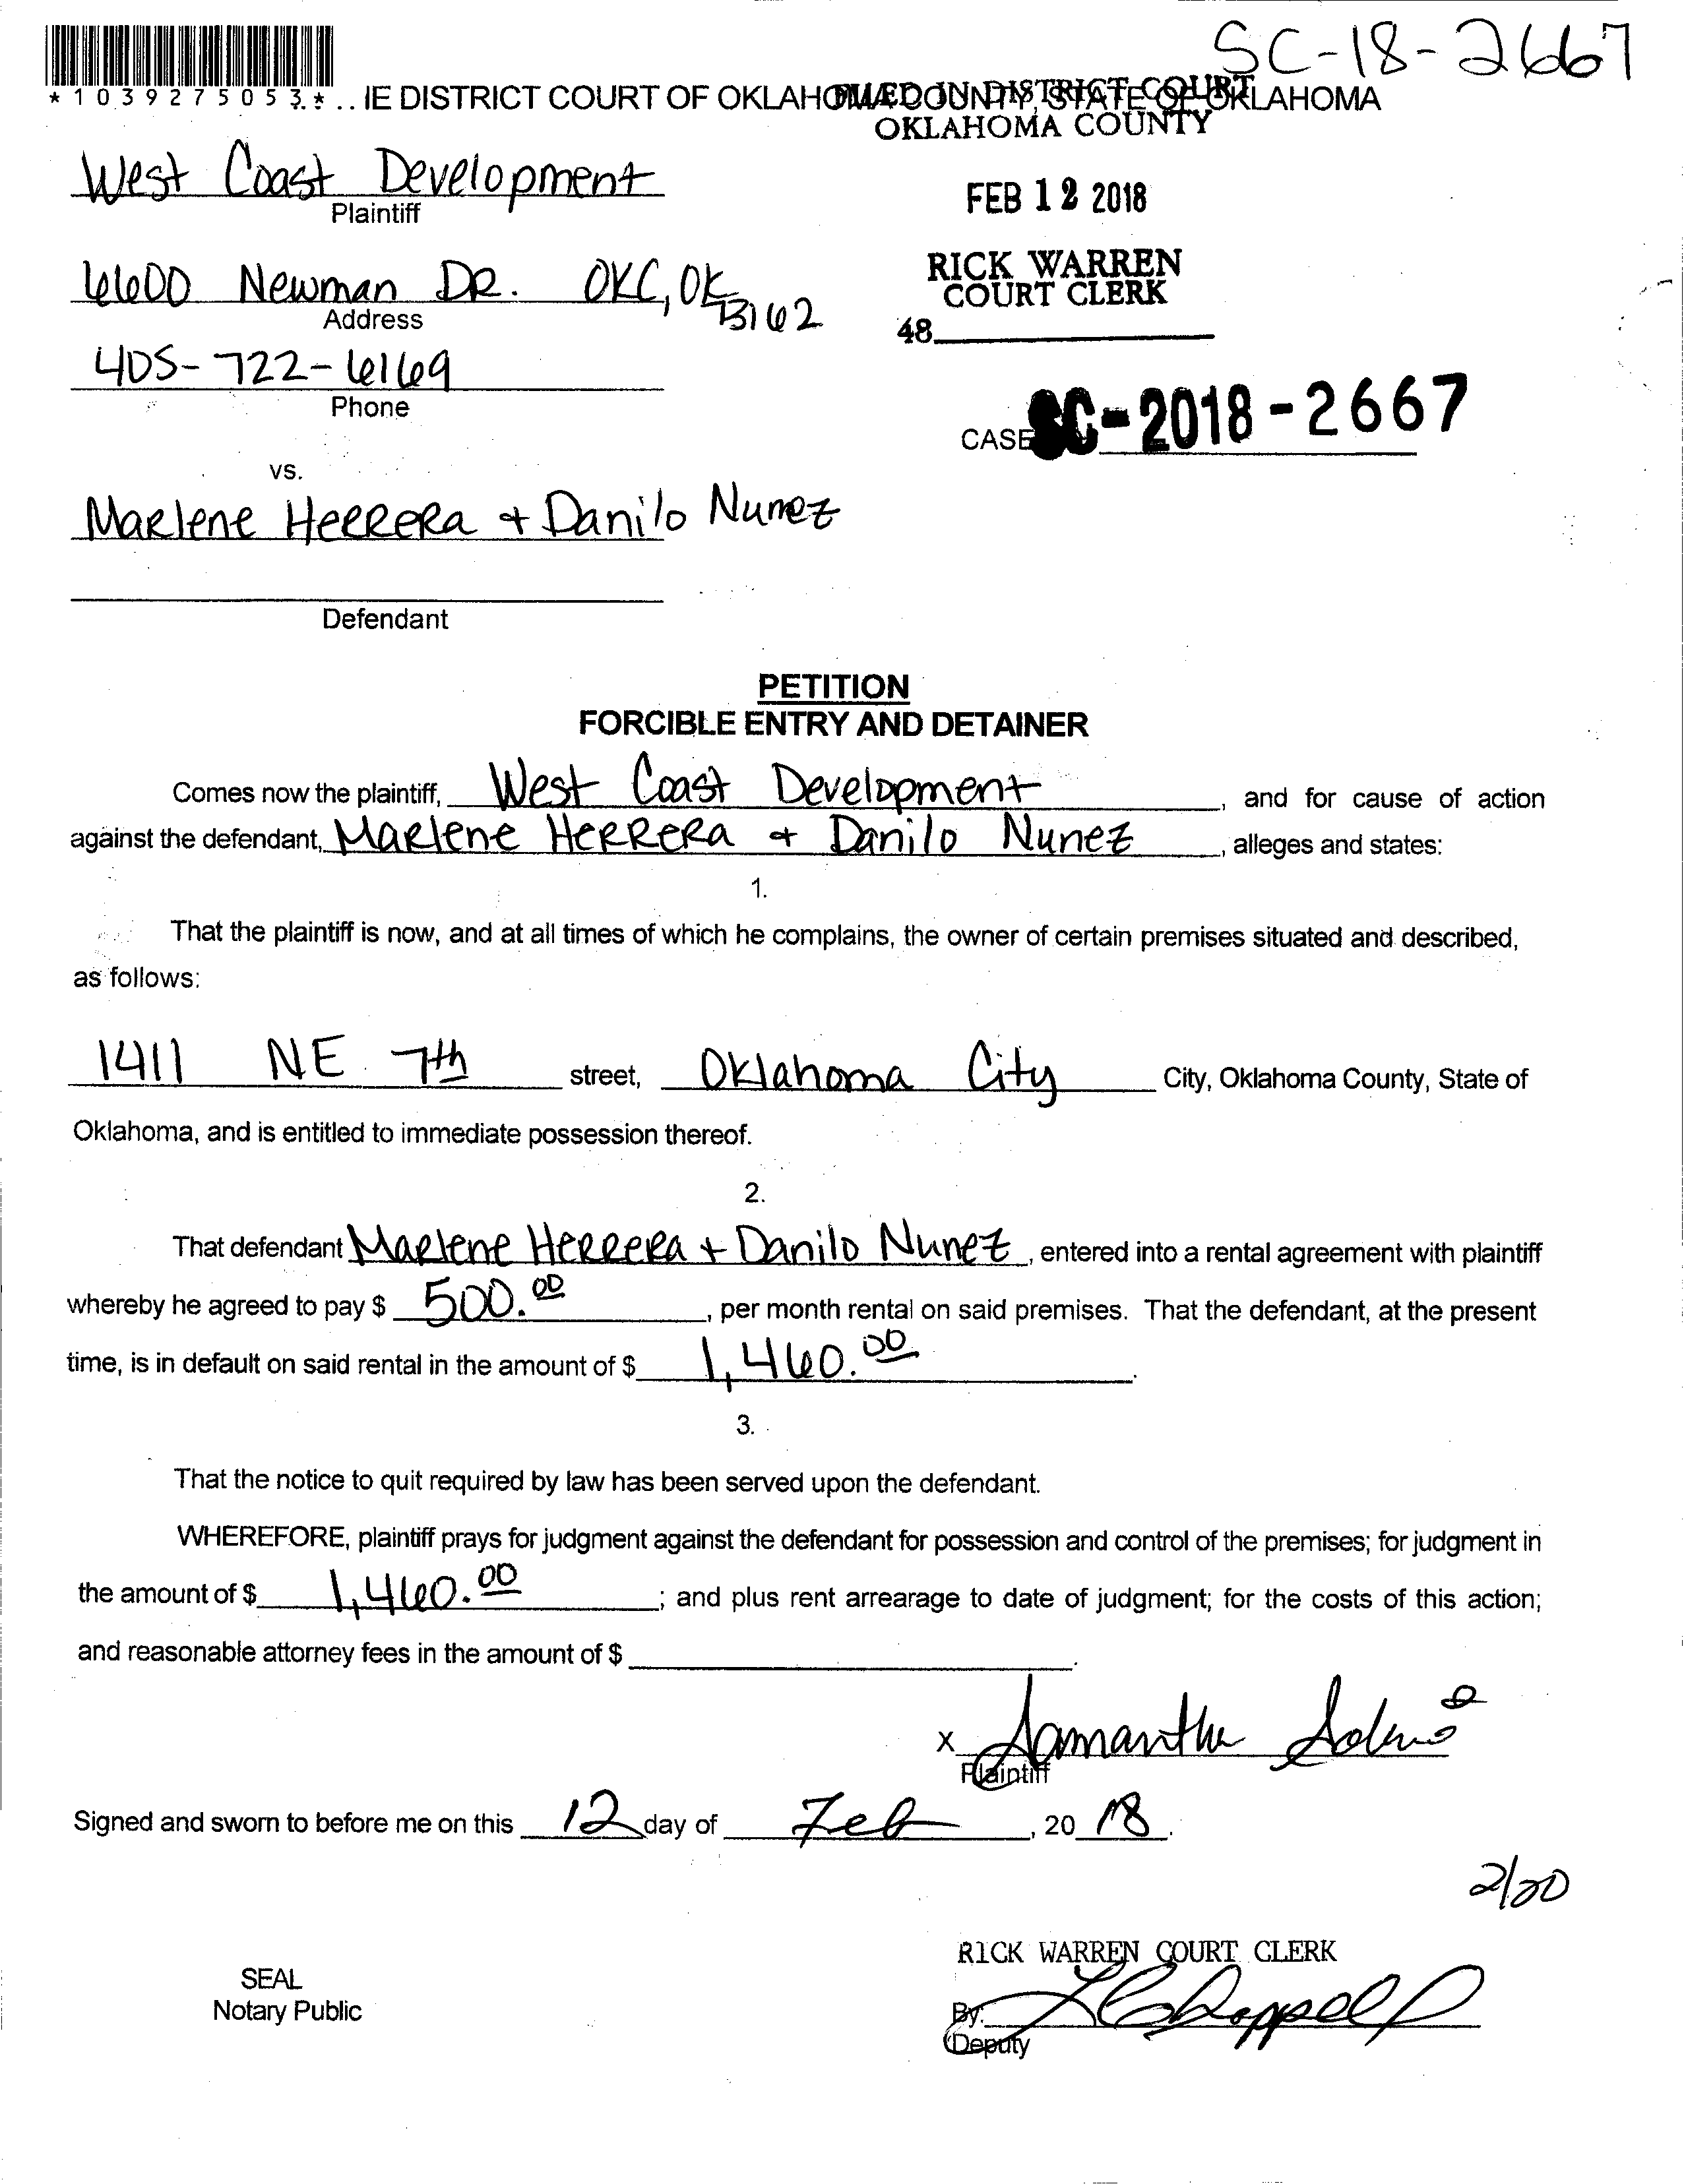 SC-18-2667
*1039275053.* .. IE DISTRICT COURT OF OKLAHOMA COUNTY, STATE OF OKLAHOMA
FILED IN DISTRICT COURT
OKLAHOMA COUNTY
West Coast Development
Plaintiff
FEB 12 2018
6600 Newman DR. OKC, OK 73162
Address
RICK WARREN
COURT CLERK
48
405-722-6169
Phone
CASE SC-2018-2667
vs.
Marlene Herrera + Danilo Nunez
Defendant
PETITION
FORCIBLE ENTRY AND DETAINER
Comes now the plaintiff, West Coast Development, and for cause of action
against the defendant, Marlene Herrera + Danilo Nunez, alleges and states:
1.
That the plaintiff is now, and at all times of which he complains, the owner of certain premises situated and described,
as follows:
1411 NE 7th street, Oklahoma City City, Oklahoma County, State of
Oklahoma, and is entitled to immediate possession thereof.
2.
That defendant Marlene Herrera + Danilo Nunez, entered into a rental agreement with plaintiff
whereby he agreed to pay $ 500.00, per month rental on said premises. That the defendant, at the present
time, is in default on said rental in the amount of $ 1,460.00.
3.
That the notice to quit required by law has been served upon the defendant.
WHEREFORE, plaintiff prays for judgment against the defendant for possession and control of the premises; for judgment in
the amount of $ 1,460.00; and plus rent arrearage to date of judgment; for the costs of this action;
and reasonable attorney fees in the amount of $ .
x Samantha
Plaintiff
Signed and sworn to before me on this 12 day of Feb, 2018.
2/20
RICK WARREN COURT CLERK
SEAL
Notary Public
By:
Deputy